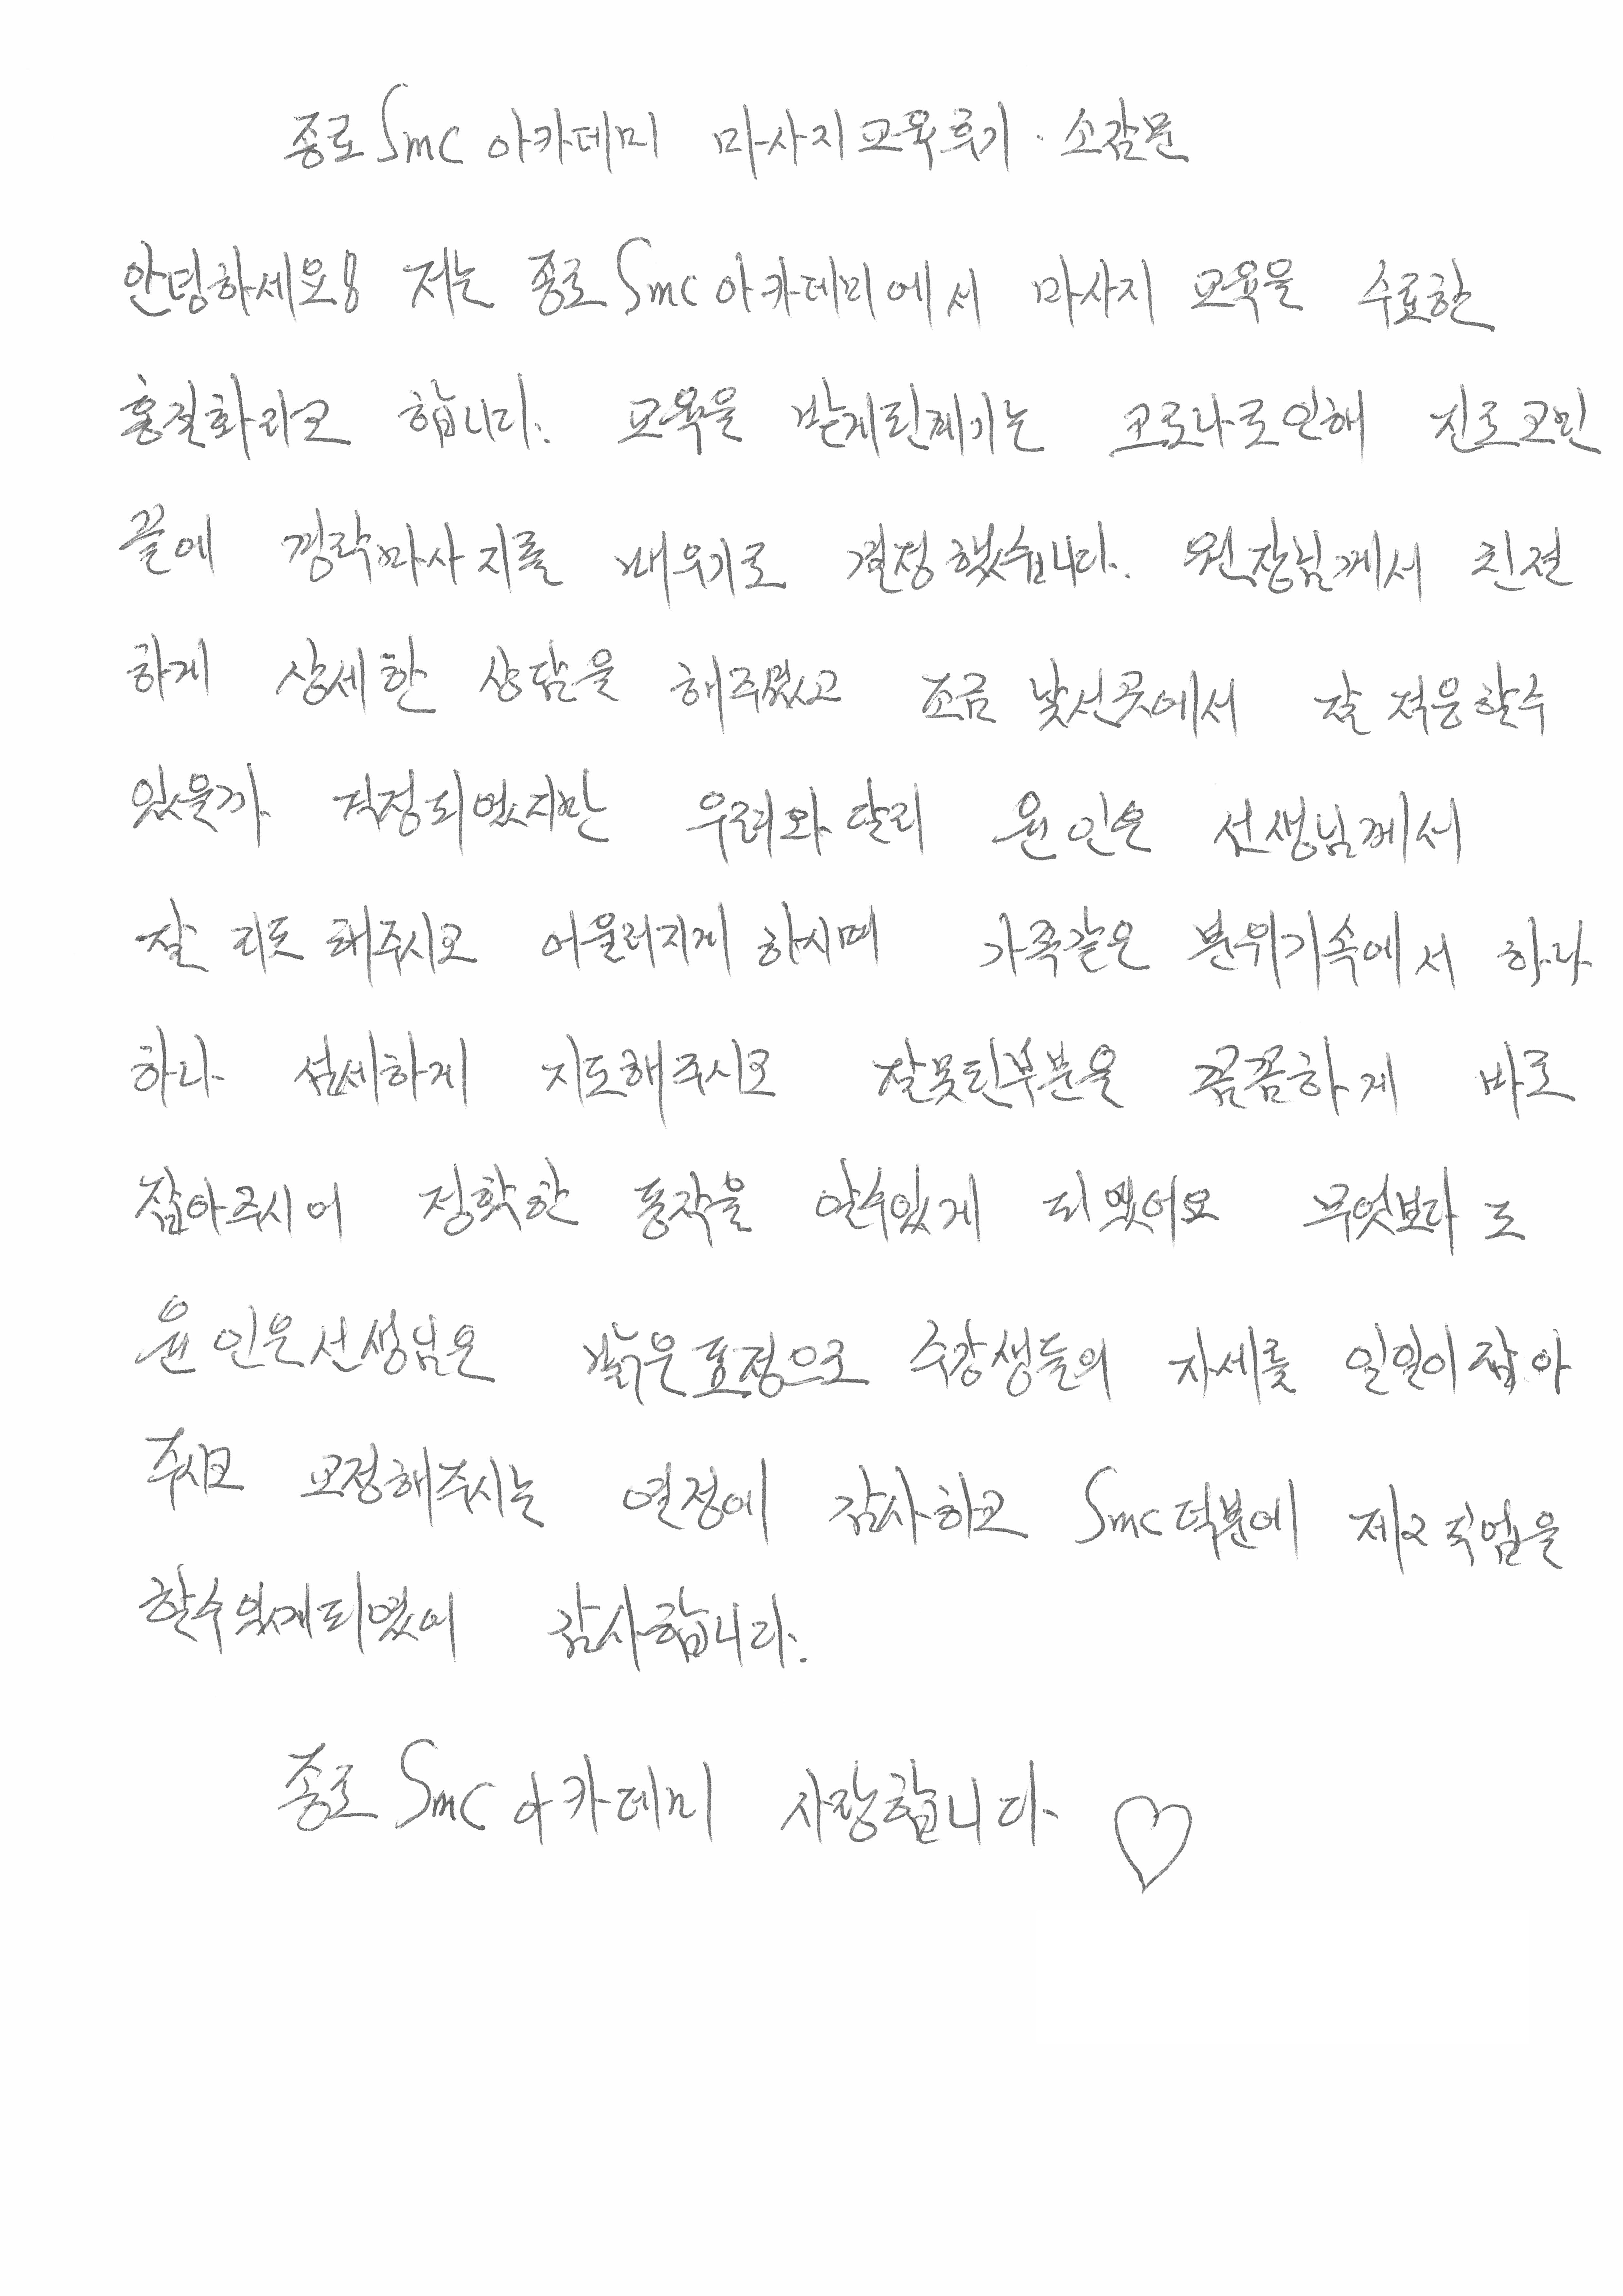 종로 Smc 아카데미 마사지 교육후기 · 소감문
안녕하세요! 저는 종로 Smc 아카데미에서 마사지 교육을 수료한
홍길화라고 합니다. 교육을 받게된계기는 코로나로인해 진로고민
끝에 경락마사지를 배우기로 결정했습니다. 원장님께서 친절
하게 상세한 상담을 해주셨고 조금 낯선곳에서 잘 적응할수
있을까 걱정되었지만 우려와 달리 윤인은 선생님께서
잘 리드 해주시고 어울러지게 하시며 가족같은 분위기속에서 하나
하나 섬세하게 지도해주시고 잘못된부분을 꼼꼼하게 바로
잡아주시어 정확한 동작을 알수있게 되였어요 무엇보다 도
윤인은선생님은 밝은표정으로 수강생들의 자세를 일일이 잡아
주시고 교정해주시는 열정에 감사하고 Smc 덕분에 제2직업을
할수있게되였어 감사합니다.
종로 Smc 아카데미 사랑합니다